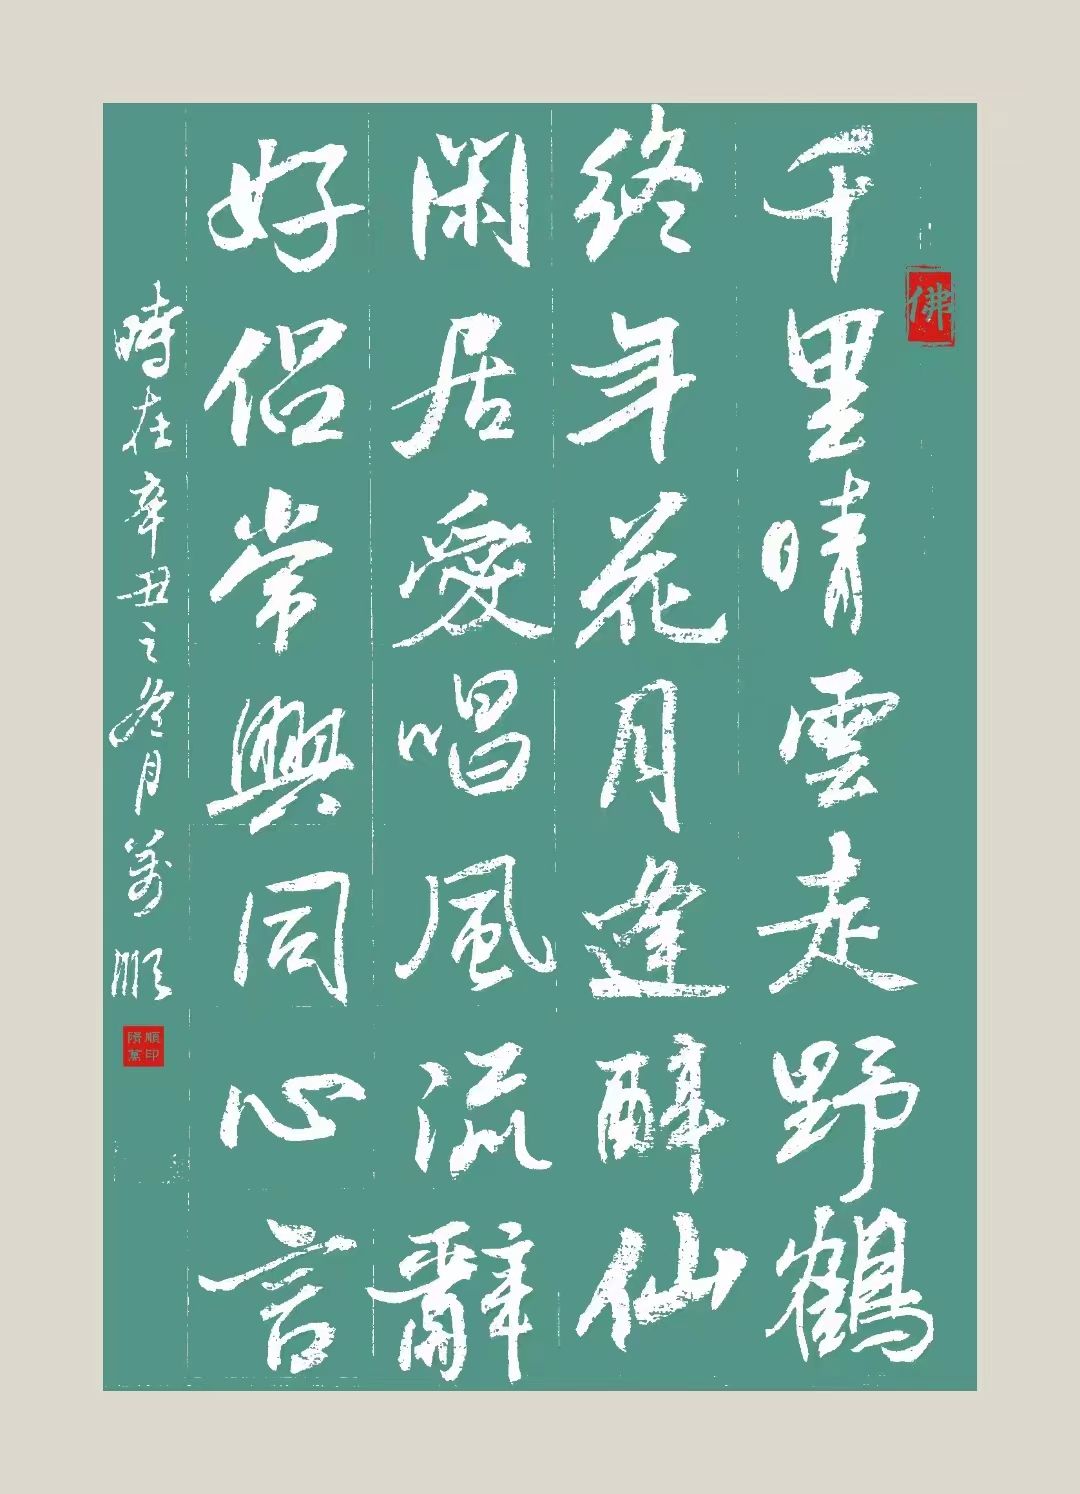 千里晴雲走野鶴
終年花月逢醉仙
閑居愛唱風流辭
好侶常興同心言
時在辛丑之冬月萬順
佛
順印
隋萬